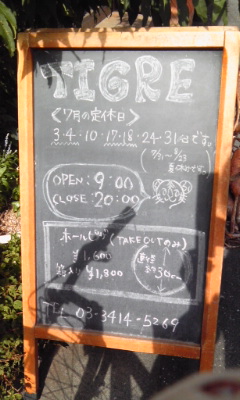 TIGRE
〈7月の定休日〉
3・4・10・17・18・24-31日です。
OPEN: 9:00
CLOSE: 20:00
ホールピザ (TAKE OUTのみ)
¥1,600
箱入り ¥1,800
直径
約30cm
TEL 03-3414-5269